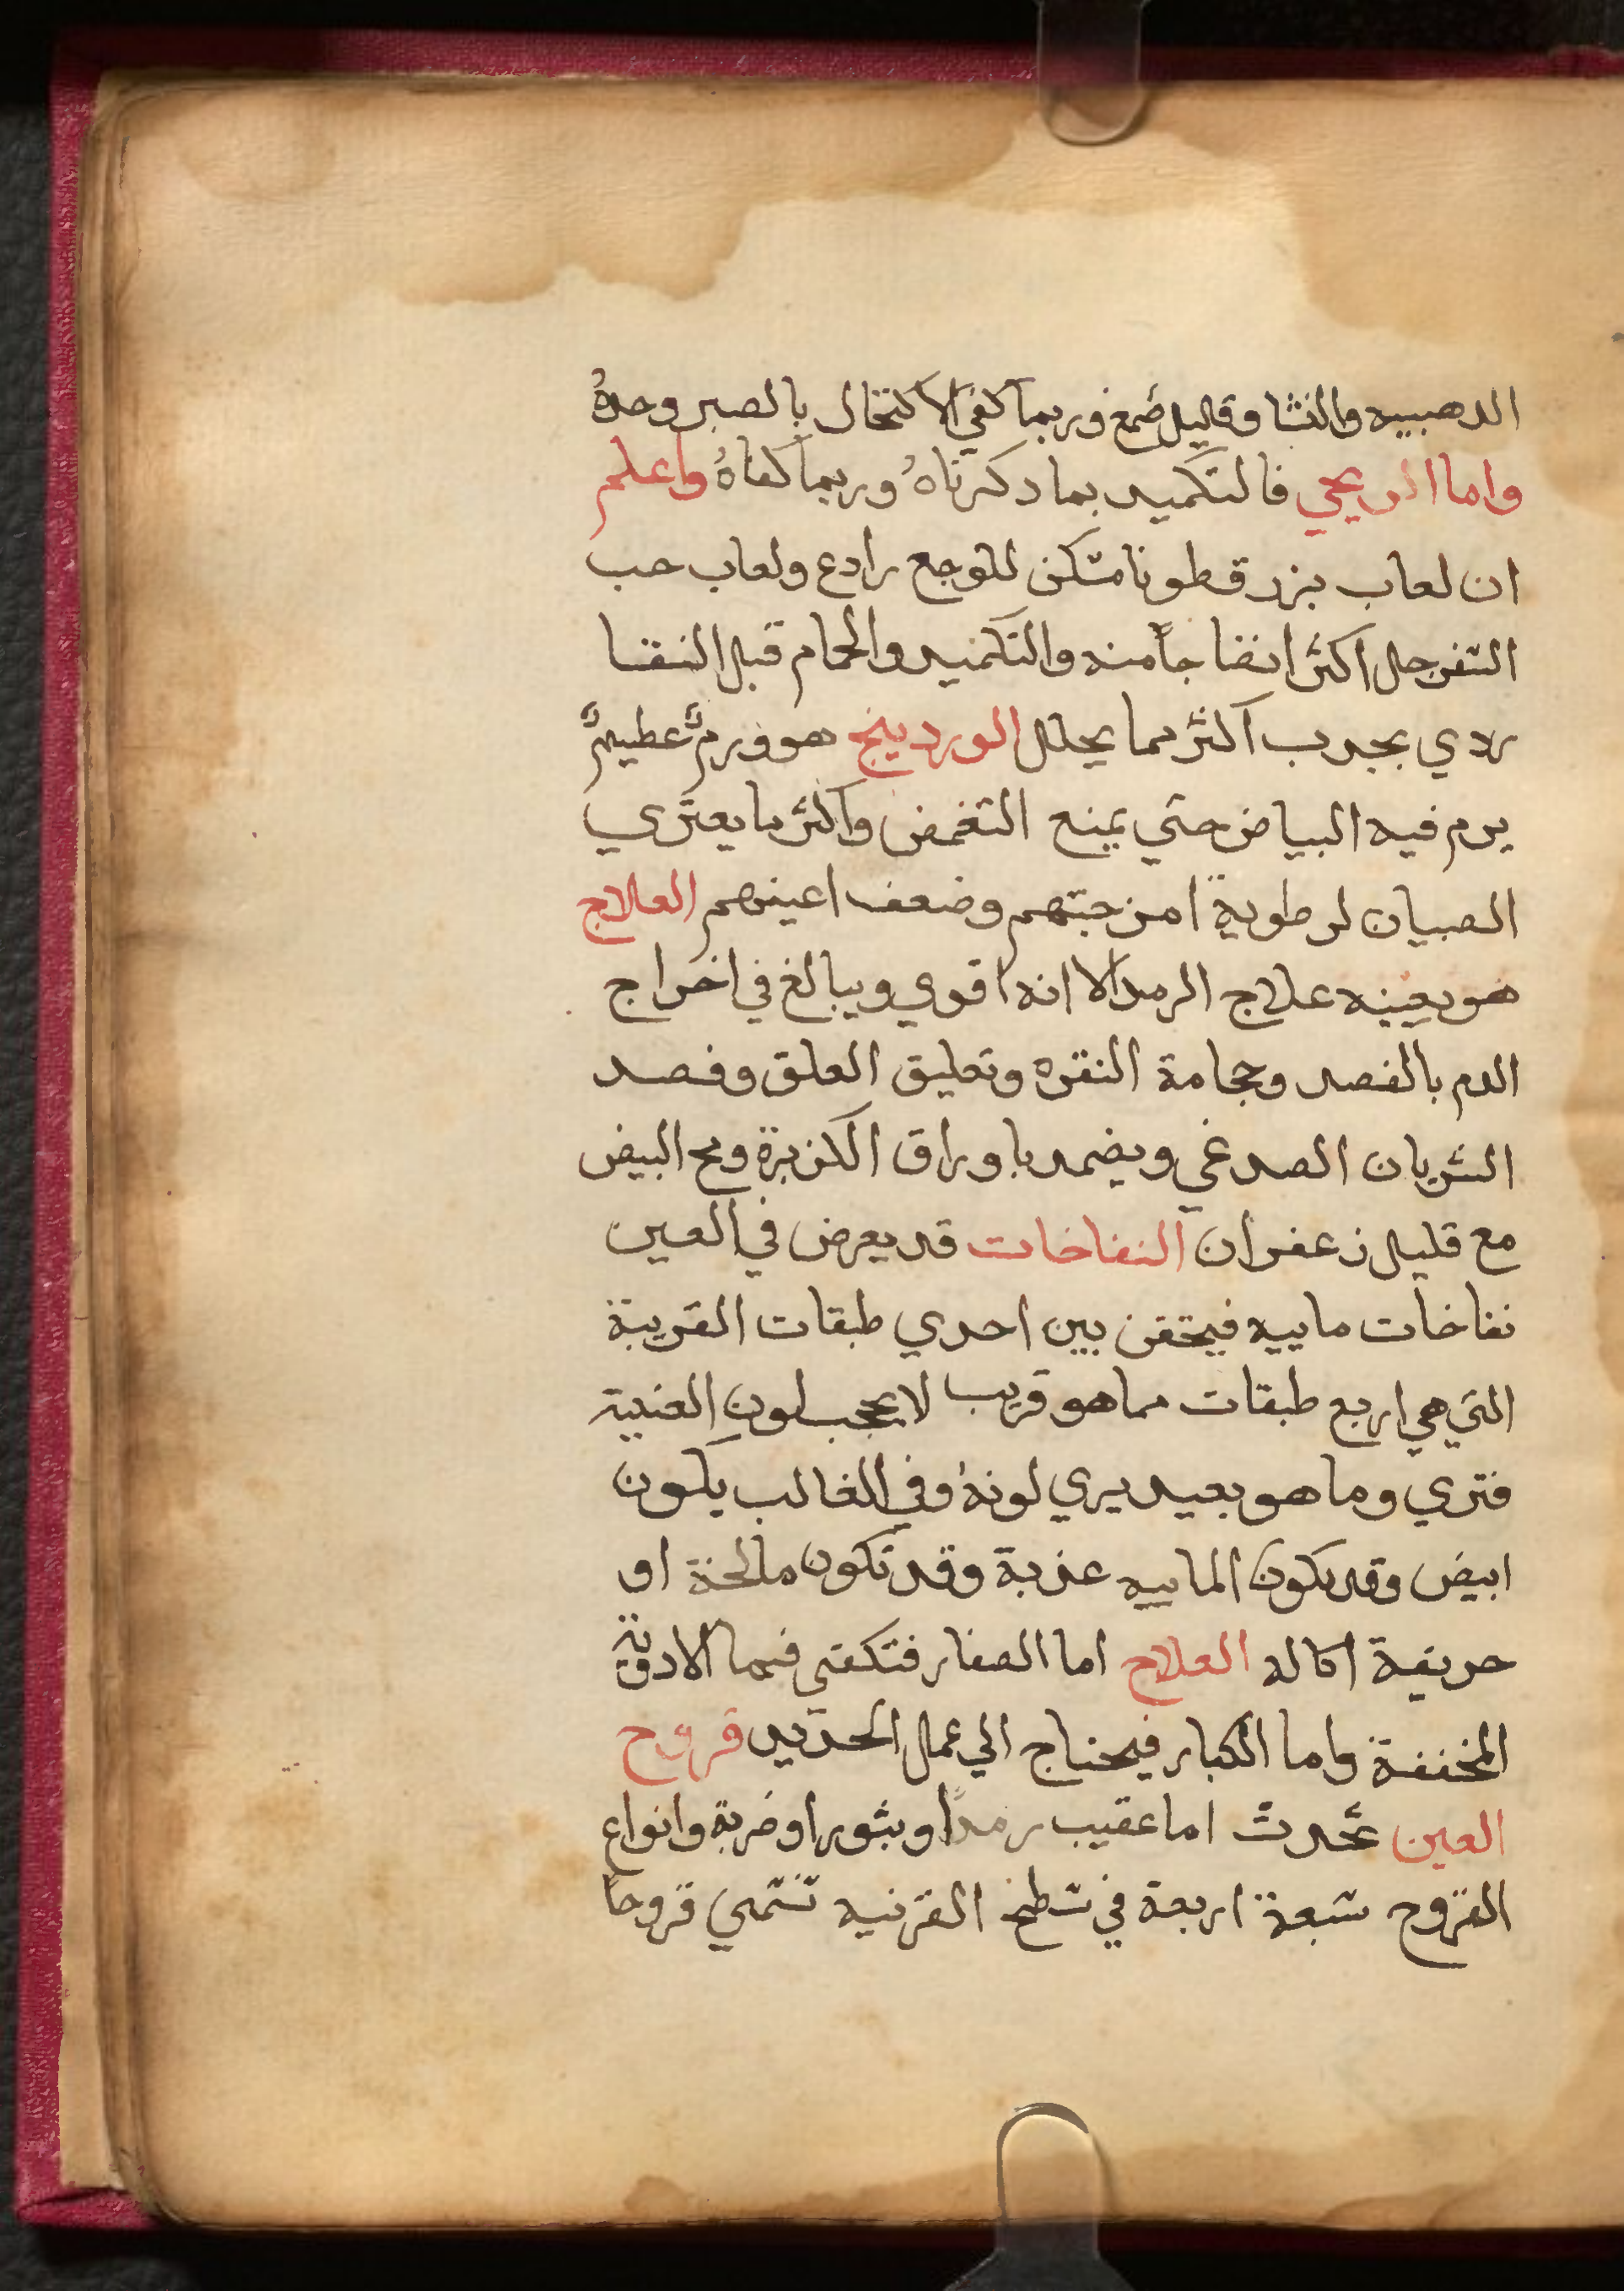 الدهبيه والنشا وقليل ضمغ وربما كفي الاكتحال بالصبر وحدهُ
واما الريحي فالتكميد بما دكرناهُ وربما كفاهُ واعلم
ان لعاب بزر قطونا مسكن للوجع رادع ولعاب حب
السفرجل اكثر انضاجاً منه والتكميد والحمام قبل النقا
ردي يجدب اكثر مما يحلل الوردينج هو ورمٌ عظيمٌ
يرم فيه البياض حتي يمنع التغمض واكثر ما يعتري
الصبيان لرطوبة امزجتهم وضعف اعينهم العلاج
هو بعينه علاج الرمد الا انه اقوي ويبالغ في اخراج
الدم بالفصد وحجامة النقره وتعليق العلق وفصد
الشريان الصدغي ويضمد باوراق الكزبرة ومح البيض
مع قليل زعفران النفاخات قد يعرض في العين
نفاخات ماييه فيحتقن بين احدي طبقات القريبة
التي هي اربع طبقات مما هو قريب لا يحجب لون العنبية
فتري وما هو بعيد يري لونهُ وفي الغالب يكون
ابيض وقد يكون الماييه عذبة وقد تكون مالحة او
حريفة اكاله العلاج اما الصغار فتكفي فيها الادوية
المخففة واما الكبار فيحتاج الي عمل الحديد قروح
العين تحدث اما عقيب رمداً وبثورا وضربة وانواع
القروح سبعة اربعة في سطح القرنيه تسمي قروحا